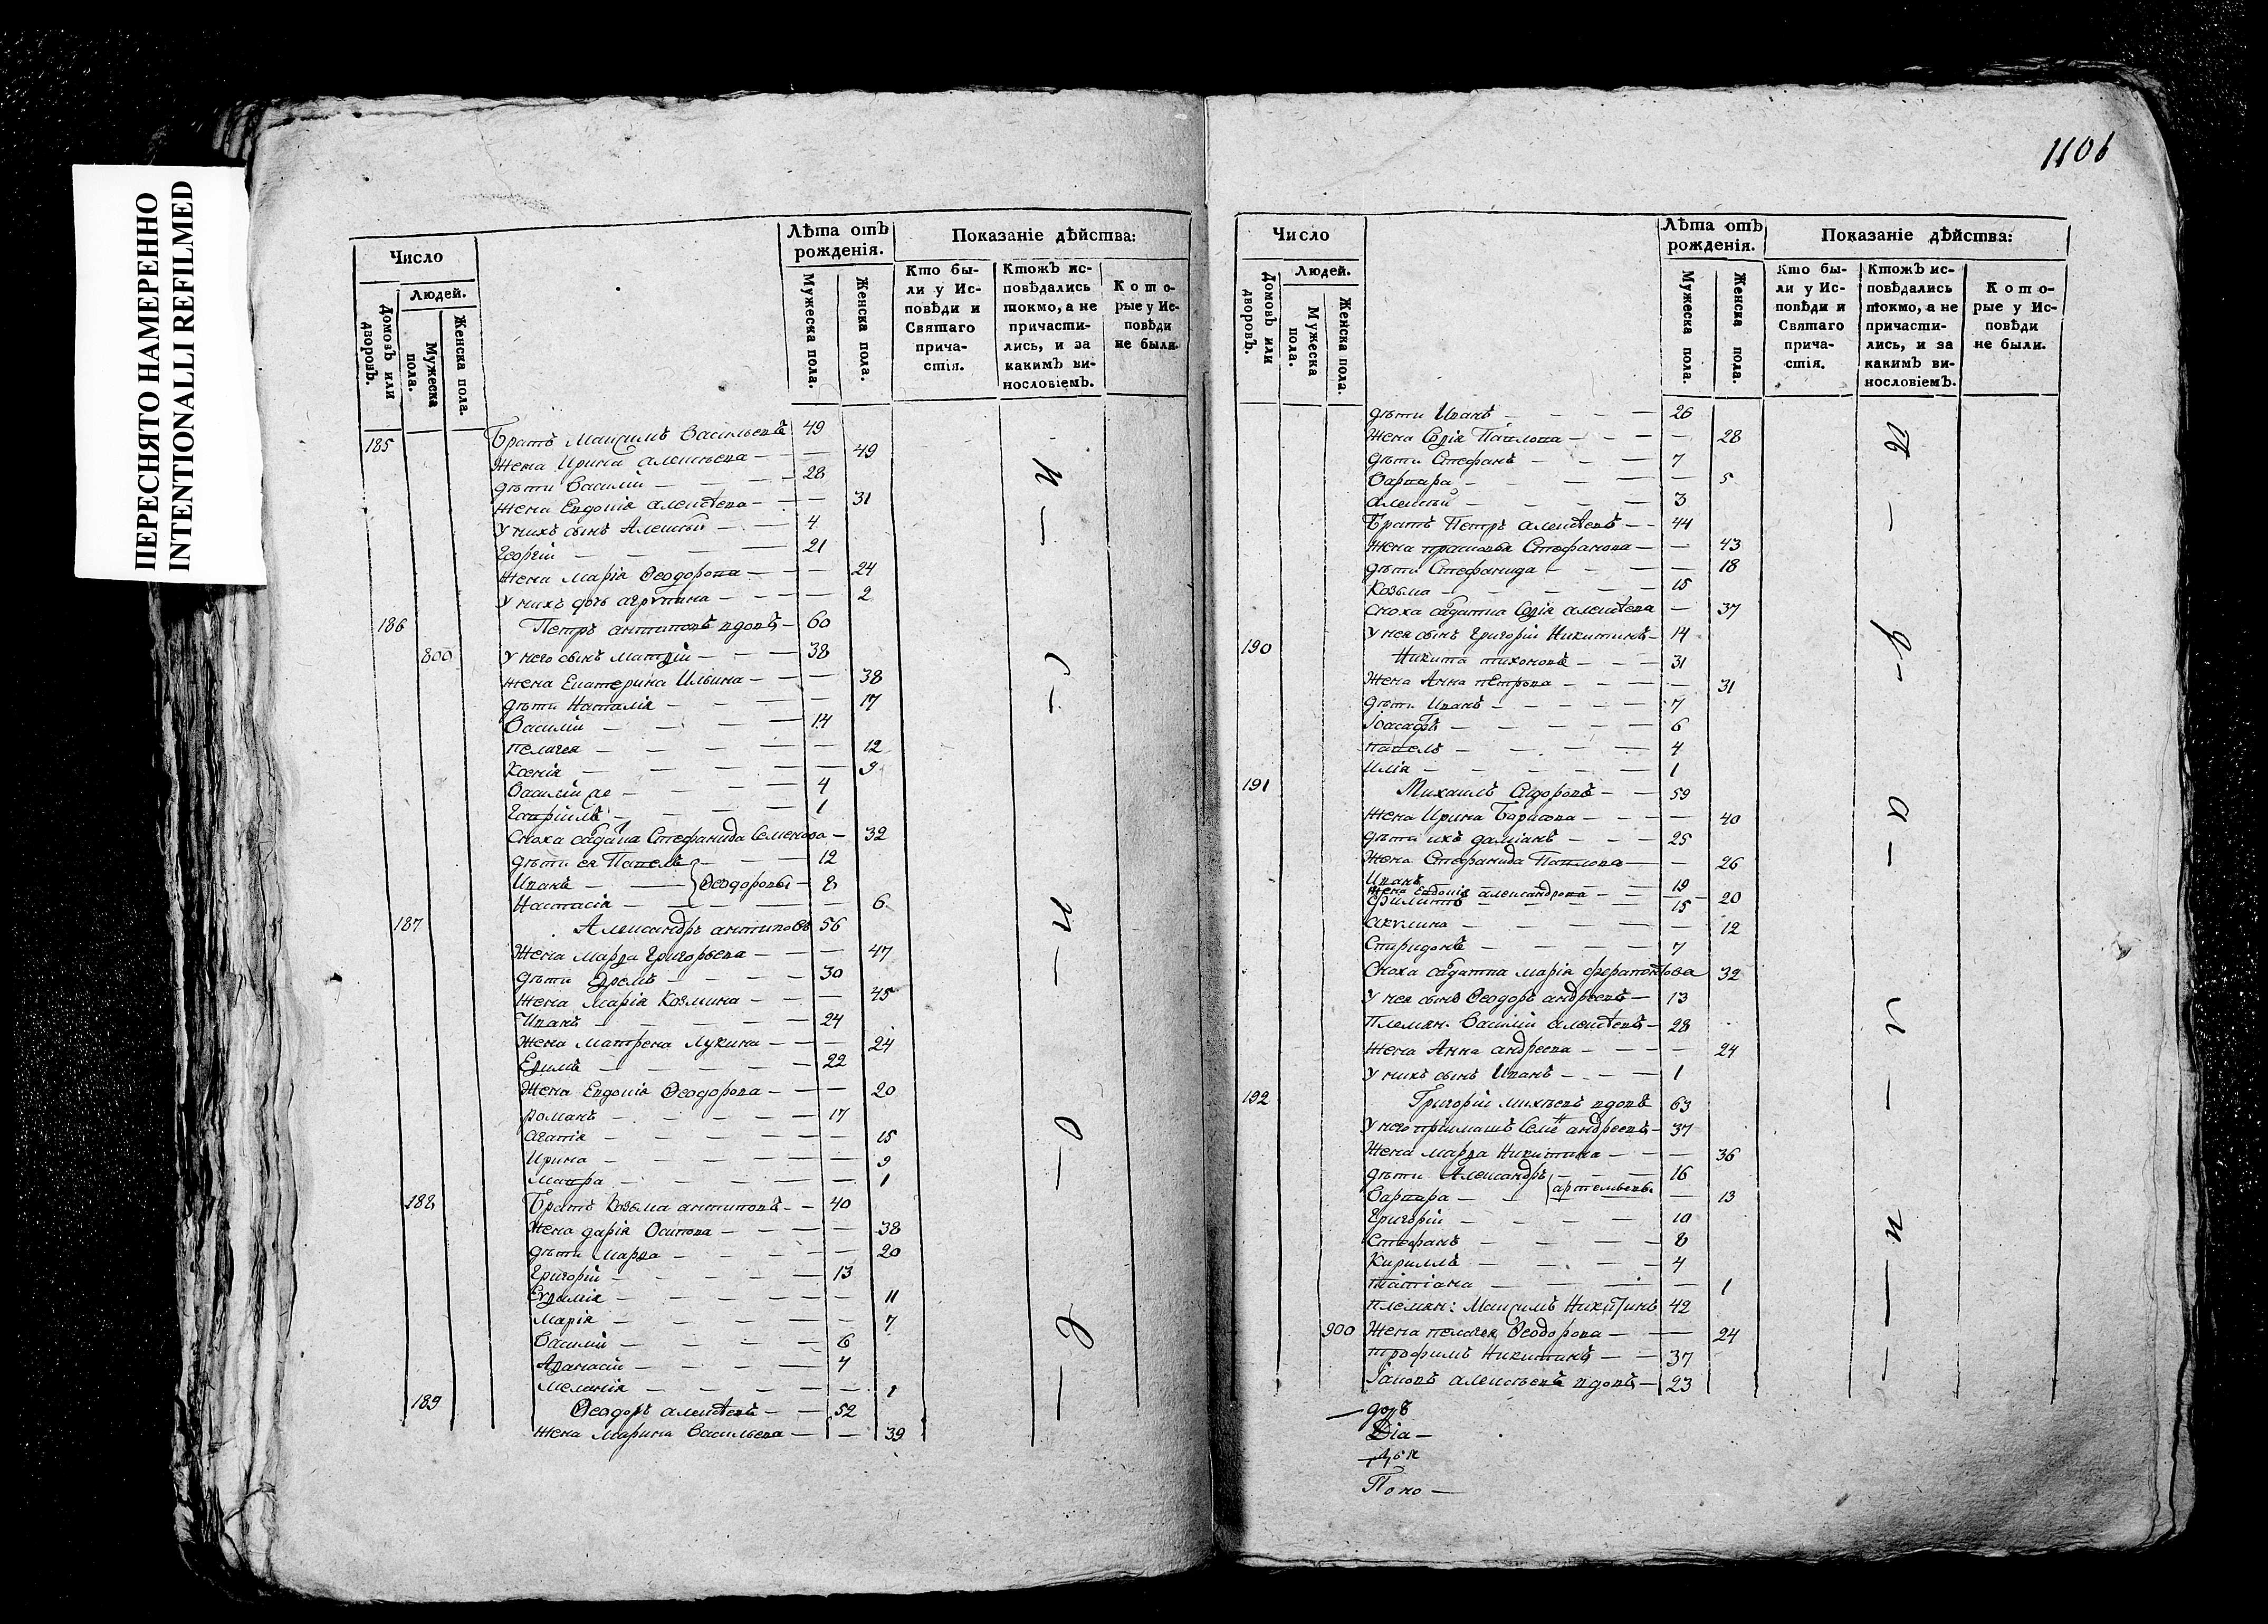 ПЕРЕСНЯТО НАМЕРЕННО
INTENTIONALLI REFILMED
Число
Людей.
Домовъ или дворовъ.
Мужеска пола.
Женска пола.
Лѣта отъ рожденія.
Мужеска пола.
Женска пола.
Показаніе дѣйства:
Кто были у Исповѣди и Святаго причастія.
Ктожъ исповѣдались токмо, а не причастились, и за какимъ винословіемъ.
Которые у Исповѣди не были.
185 Братъ Маѯимъ Васильевъ 49
Жена Ирина Алексѣева — — 49
дѣти Василій — — 28
Жена Евдокія Алексѣева — — 31
У нихъ сынъ Алексѣй — — 4
Георгій — — 21
Жена Марія Ѳеодорова — — 24
У нихъ дочь Агрѵпина — — 2
186 Петръ Антиповъ вдовъ — 60
800 У него сынъ Матѳій — — 38
Жена Екатерина Ильина — — 38
дѣти Наталія — — 17
Василій — — 14
Пелагея — — 12
Ксенія — — 9
Василій — — 4
Гавріилъ — — 1
Сноха Стефанида Семенова — 32
дѣти ея Павелъ — — 12
Иванъ — — Ѳеодоровы — 8
Настасія — — 6
187 Александръ Антиповъ 56
Жена Марѳа Григорьева — — 47
дѣти — — 30
Жена Марія Козмина — — 45
Иванъ — — 24
Жена Матрена Лукина — — 24
Еѳимъ — — 22
Жена Евдокія Ѳеодорова — — 20
Романъ — — 17
Агапія — — 15
Ирина — — 9
Мавра — — 1
188 Братъ Козьма Антиповъ — 40
Жена Дарія Осипова — — 38
дѣти Марѳа — — 20
Григорій — — 13
Еѵѳимія — — 11
Марія — — 7
Василій — — 6
Аѳанасій — — 4
Меланія — — 1
189 Ѳеодоръ Алексѣевъ — — 52
Жена Марина Васильева — — 39
1106
Число
Людей.
Домовъ или дворовъ.
Мужеска пола.
Женска пола.
Лѣта отъ рожденія.
Мужеска пола.
Женска пола.
Показаніе дѣйства:
Кто были у Исповѣди и Святаго причастія.
Ктожъ исповѣдались токмо, а не причастились, и за какимъ винословіемъ.
Которые у Исповѣди не были.
дѣти Иванъ — — 26
Жена Софія Павлова — — 28
дѣти Стефанъ — — 7
Варвара — — 5
Алексѣй — — 3
Братъ Петръ Алексѣевъ — — 44
Жена Прасковья Стефанова — — 43
дѣти Стефанида — — 18
Козьма — — 15
Сноха Софія Алексѣева — 37
У нея сынъ Григорій Никитинъ — 14
190 Никита Тихоновъ — — 31
Жена Анна Петрова — — 31
дѣти Иванъ — — 7
Іоасафъ — — 6
Павелъ — — 4
Илія — — 1
191 Михаилъ Сидоровъ — — 59
Жена Ирина Борисова — — 40
дѣти ихъ Даміанъ — — 25
Жена Стефанида Павлова — — 26
Иванъ — — 19
Жена Евдокія Александрова — — 20
Филиппъ — — 15
Акулина — — 12
Спиридонъ — — 7
Сноха Марія Ферапонтова 32
У нея сынъ Ѳеодоръ Андреевъ — 13
Племян. Василій Алексѣевъ — 28
Жена Анна Андреева — — 24
У нихъ сынъ Иванъ — — 1
192 Григорій Михѣевъ вдовъ 63
У него примакъ Семенъ Андреевъ — 37
Жена Марѳа Никитина — — 36
дѣти Александръ — — 16
Варвара — Артемьевы — 13
Григорій — — 10
Стефанъ — — 8
Кириллъ — — 4
Татіана — — 1
Племян: Маѯимъ Никитинъ 42
900 Жена Пелагея Ѳеодорова — — 24
Трофимъ Никитинъ — — 37
Іаковъ Алексѣевъ вдовъ — 23
Діа —
Поно —